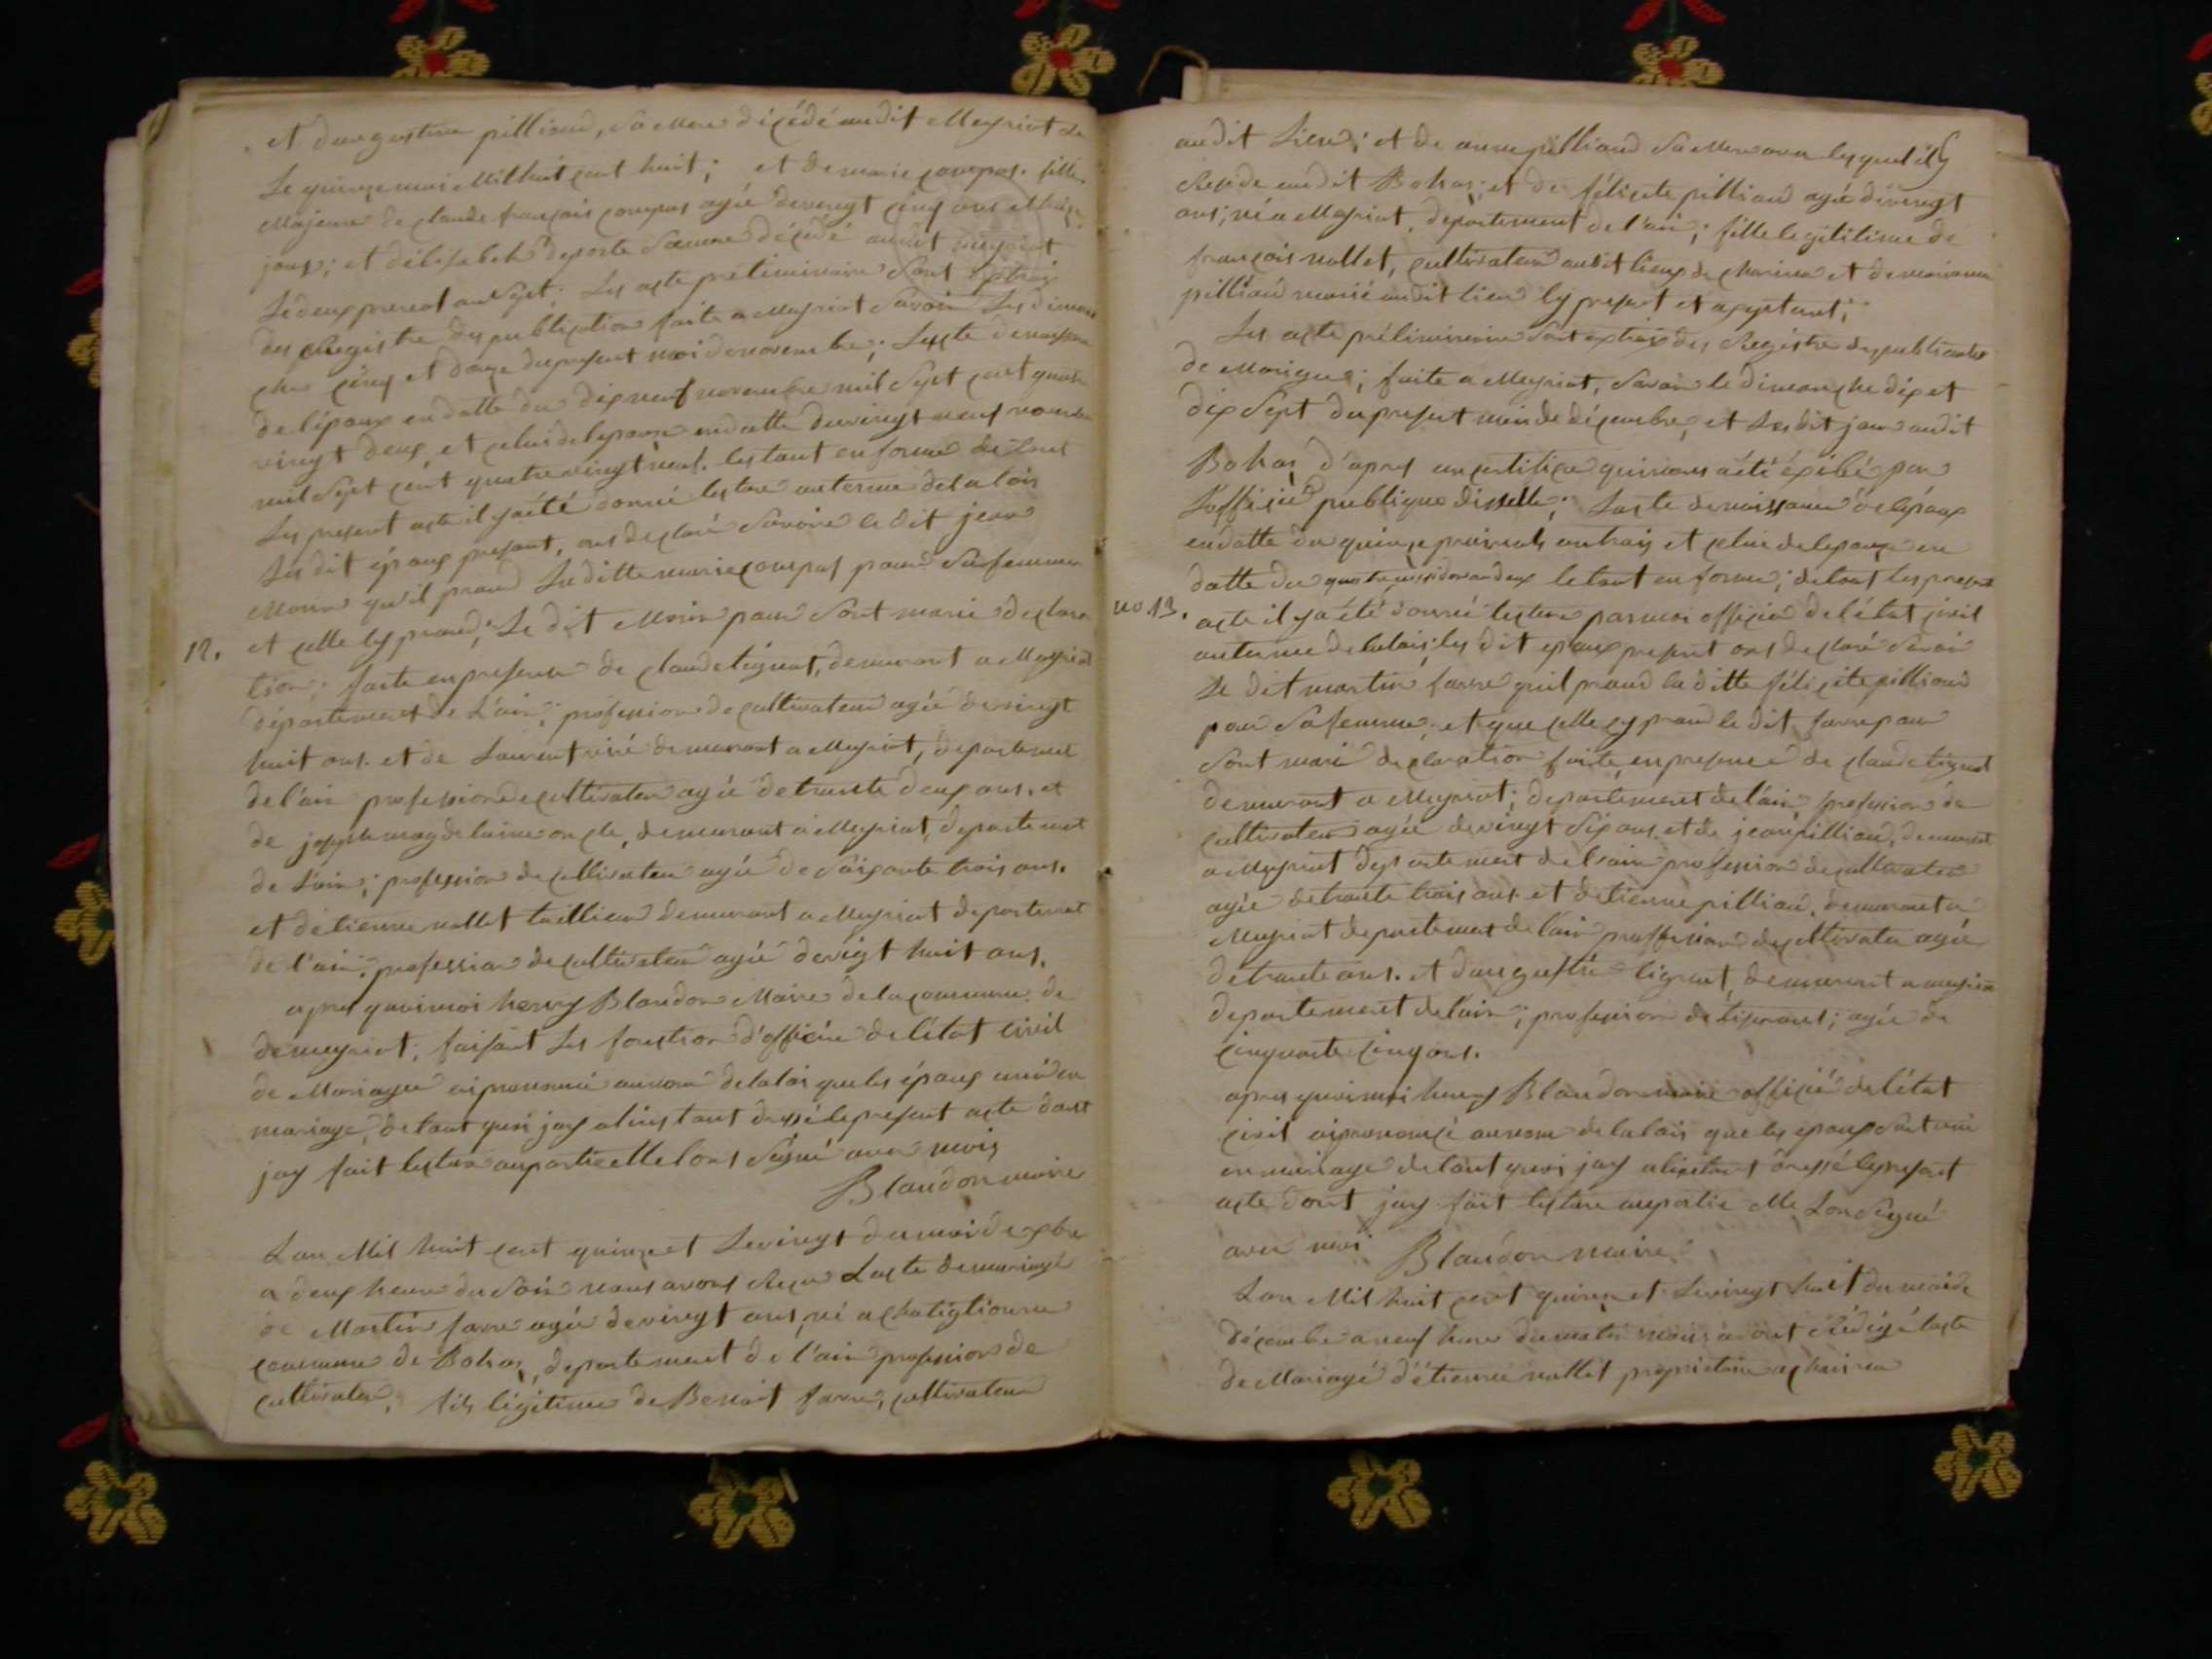 et daugustine pilliaud, sa Mere décédé audit Meyriat le
Le quinze mai Milhuit cent huit; et de marie compas. fille
Majeure de claude francais compas agée de vengt cinq ans et
jours; et délisabeh deporte Samere décédé audit meyriat
Ledeux prereal an Sept; Les acte préliminaire sont extrais
des Registre des publication faite a Meyriat Savoir Les diman
che cinq et douze dupresent moi denovembre; Lacte denaissance
de lépoux endatte du dix neuf novembre mil Sept cent quatre
vingt deux, et celui delepouse endatte duvingt neuf novembre
mil Sept cent quatrevingt neuf. les tout en forme de tout
Les present acte il yaété donné lecture auterme delalois
Lesdit époux presant, ons declaré Savoire le dit jean
Morin qu'il prand Laditte marie compas pour Safemme
12. et celle cy prand, Le dit Morin pour Sont marie declara
tion; faite en presence de claude tignat, demurant a Meyriat
département de L'ain; profession de cultivateur agée devingt
huit ans. et de Laurent demurant a Meyriat, departement
de l'ain profession de cultivateur agée de trante deux ans. et
de joseph magdelaine oncle, demurant a Meyriat, departemet
de L'ain; profession de cultivateur agée de Soixante trois ans.
et detienne nallet taillieur demurant a Meyriat departemet
de l'ain. profession de cultivateur agée devigt huit ans.
apres quoi moi henry Blandon Maire de la commune. de
demeyriat; faisant les fonction d'officier de létat civil
de Mariage ai prononcé aunom delaloi queles époux unis en
mariage, de tout quoi jay alinstant dressé lepresent acte dont
jay fait lecture auxpartie ellelons Signé avec mois
Blandon maire
Lan Mil huit cent quinze et Levingt dumoi de xbre
a deux heure du Soir nousavons Reçu Lacte demariage
de Martin favre agée devingt ans, né a chatiglionne
commune de Bohas, departement de l'ain profession de
cultivateur, fils légitime de Benoit favre, cultivateur
audit Lieu; et de anne pilliaud Sa Mere avec lesquel il
Reside audit Bohas; et de félicite pilliaud agée devengt
ans; né a Meyriat, département de l'ain; fille legititime de
francois nallet, cultivateur audit lieux de charina et de mariana
pilliaud marié audit lieu cy present et aceptant;
Les acte préliminaire Sont extrais des Registre des publication
de Mariage; faite a Meyriat, Savoir le dimanche dix et
dix Sept dupresent moi de décembre, et Les dit jour audit
Bohas d'apres uncertifica quinous aété exibé par
L'officié publique disselle; Lacte denaissance de lépoux
endatte du quinze prairials antrois et celui delepouse en
datte du quatre andeux le tout en forme; de tout les present
no 13. acte il ya été donné lecture parmoi officier de létat civil
auterme delalois; les dit epoux present ons declaré Savoir
Le dit martin favre quil prand la ditte félicite pilliaud
pour Safemme, et que celle cy prand le dit favre pour
Sont mari declaration faite en presence de claude tignat
demurant a Meyriat; departement de l'ain profession de
cultivateur agée devingt Six ans. et de jean pilliaud, demurant
a Meyriat departement de l'ain profession decultivateur
agée detrante trois ans. et detienne pilliaud, demurant a
Meyriat departemat de l'ain proffession decultivateu agée
detrante ans. et d'auguste tignat, demurant a meyriat
departement de l'ain; profession de tiserant; agée de
cinquante cinq ans.
apres quoi moi henry Blandon maire officié de létat
civil ai prononcé aunom de la lois que les epoux Sont uni
en mariage de tout quoi jay alinstant dressé lepresent
acte dont jay fait lecture aupartie elle Lon Signé
avec moi Blandon maire
Lan Mil huit cent quinze et Levingt huit du moi de
décembre a neuf heure dumatin nous avont Rédigé lacte
de Mariage détienne nallet proprietaire a charina